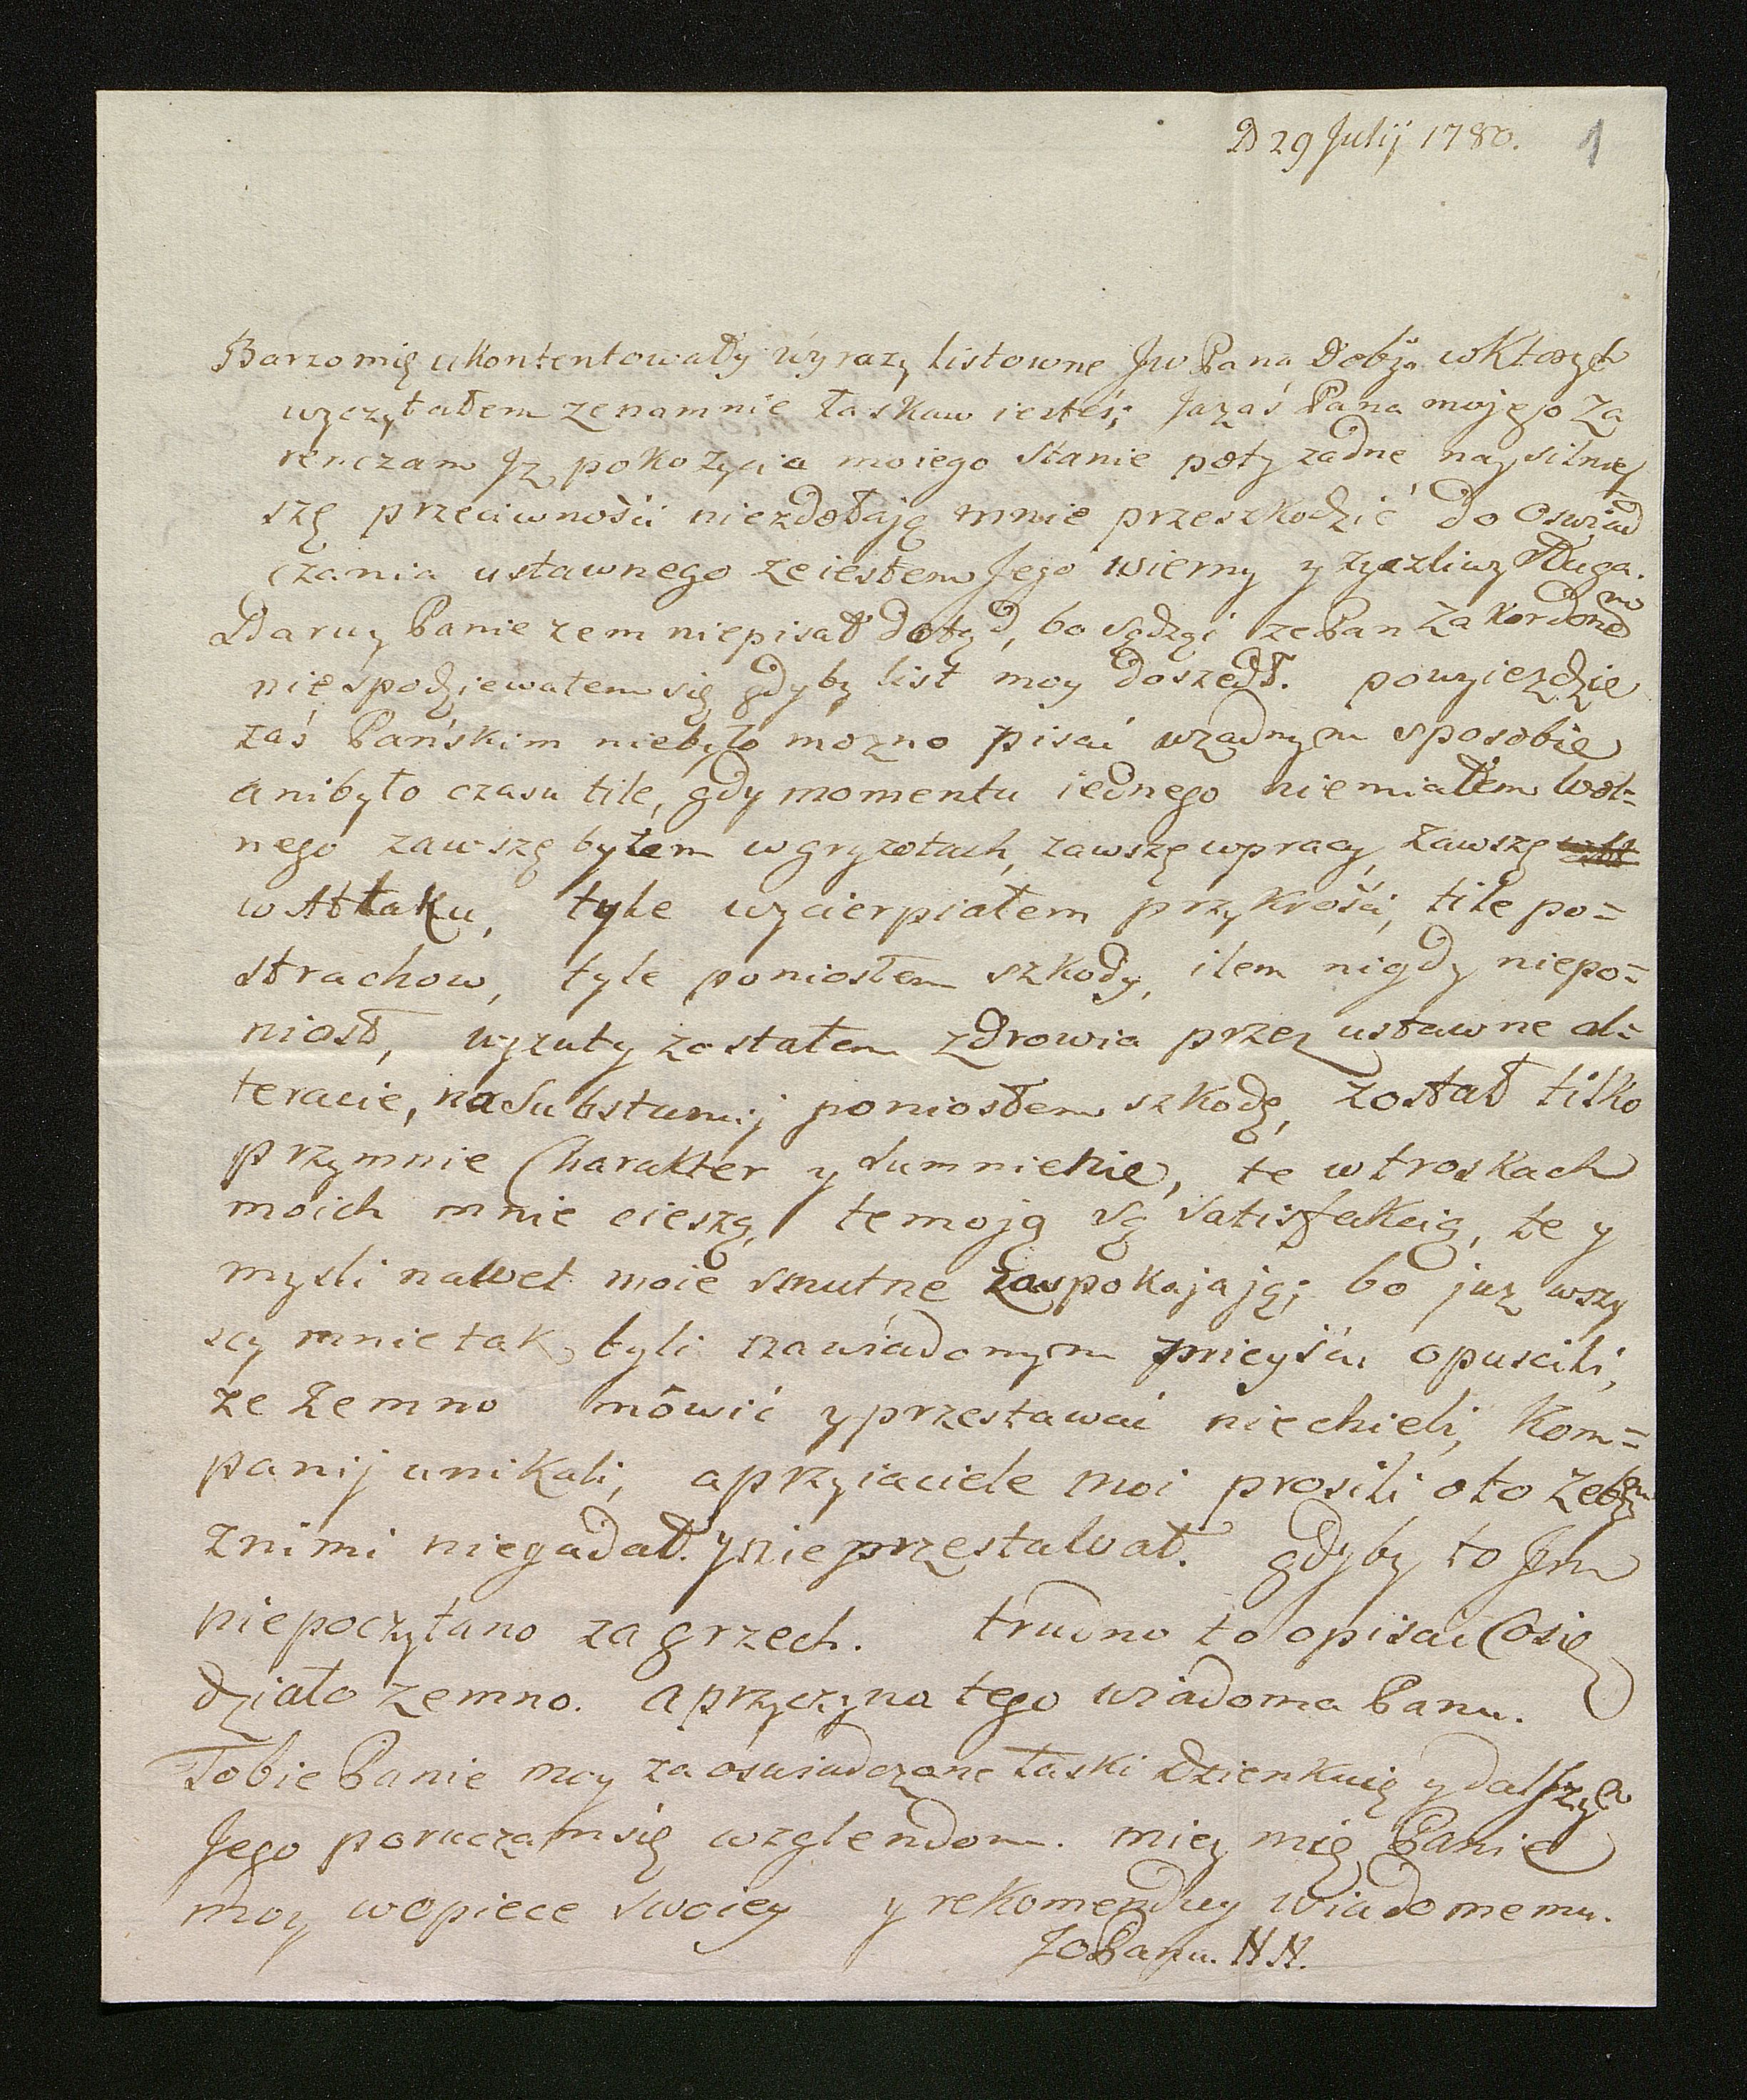 D 29 Julij 1780. 1
Barzo mię ukontentowały wyrazy listowne Jw Pana Dobja wktorych
wyczytałem ze na mnie łaskaw iesteś; Ja zaś Pana mojego Za
renczam Jz poko życia moiego Stanie poty zadne naysilniey
szę przeciwności niezdołają mnie przeszkodzić do oswiad
czania ustawnego ze iestem Jego wierny y zyczliwy sługa.
Daruy Panie zem niepisał dotyd, bo sądząć ze Pan Za kordonem
nie spodziewałem się gdyby list moy doszedł. po wyiezdzie
zaś Pańskim niebyło można pisać wzadnym sposobie
ani było czasu tile, gdy momentu iednego niemiałem wol=
nego zawszę byłem wgryzotach, zawszę wpracy, zawszę
w Attaku, tyle wycierpiałem przykrości, tile po=
strachow, tyle poniosłem szkody, ilem nigdy niepo=
niosł, wyzuty zostałem zdrowia przez ustawne al=
teracie, na substancij poniosłem szkodę, został tilko
przymnie Charakter y sumnienie, te w troskach
moich mnie cieszą, te moją są satisfakcią, te y
mysli nawet moie smutne zaspokajają; bo juz wszy
scy mnie tak byli na wiadomym mieyscu opuscili,
ze zemno mówić y przestawać niechieli, Kom=
panij unikali, a przyiaciele moi prosili oto zebym
znimi niegadał. y nie przestawał. gdyby to Jm
niepoczytano za grzech. trudno to opisać Co się
działo zemno. a przyczyna tego wiadoma Panu.
Tobie Panie moy za oświadczone łaski Dzienkuię y dalszym
Jego poruczam się wzglendom. miey mię Panie
moy wopiece swoiey y rekomenduy wiadomemu.
JO Panu. N N.